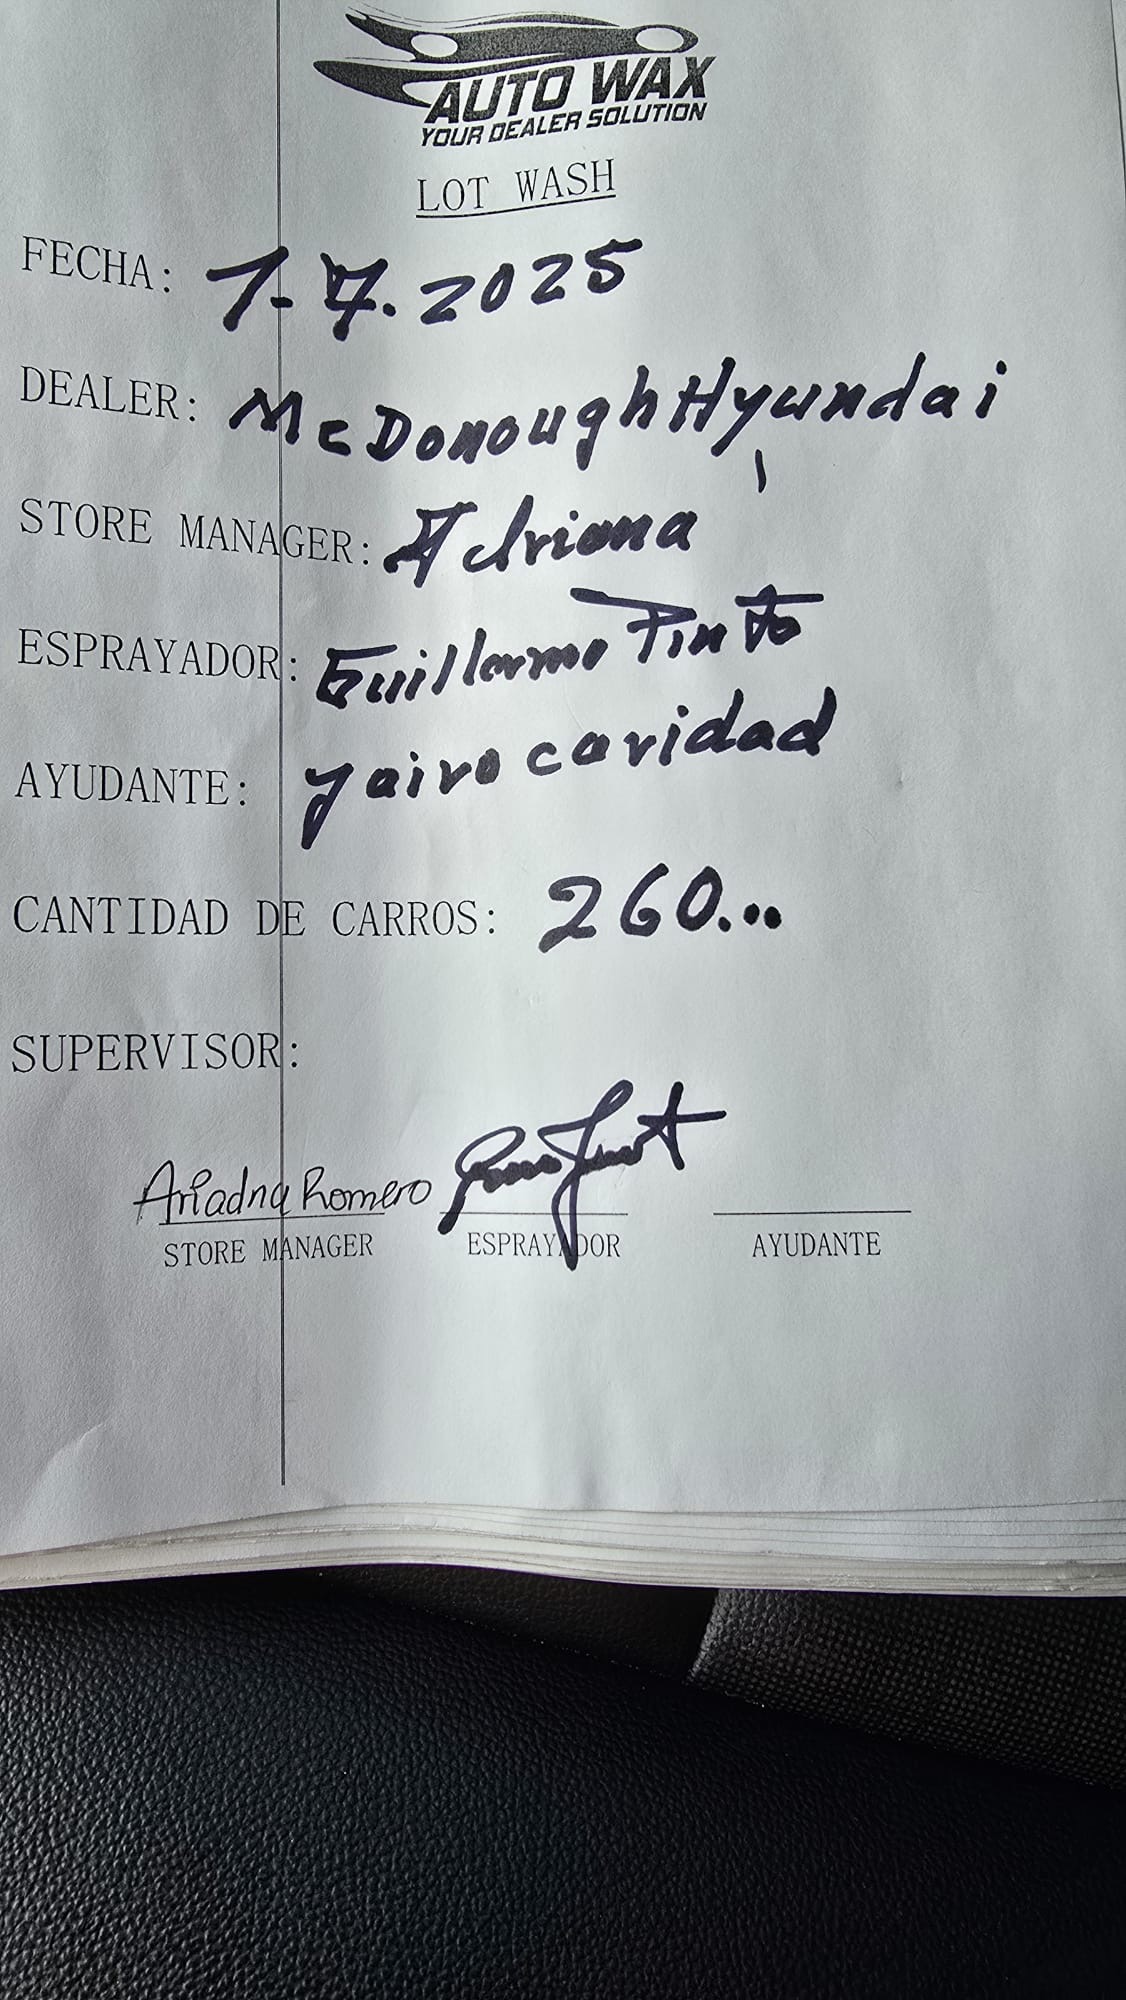 AUTO WAX
YOUR DEALER SOLUTION
LOT WASH
FECHA: 1-7.2025
DEALER: McDonough Hyundai
STORE MANAGER: Adriana
ESPRAYADOR: Guillermo Pinto
AYUDANTE: yairo caridad
CANTIDAD DE CARROS: 260...
SUPERVISOR:
Ariadna Romero
STORE MANAGER ESPRAYADOR AYUDANTE